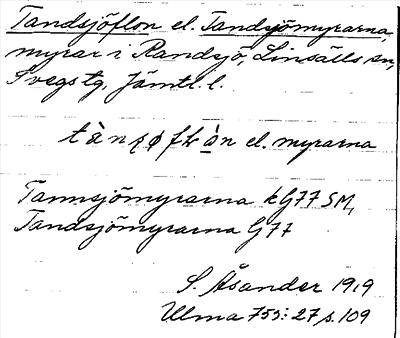 Tandsjöflon el. Tandsjömyrarna,
myrar i Randsjö, Linsälls sn,
Svegs tg, Jämtl. l.
el. myrarna
Tannsjömyrarna k G77 SM,
Tandsjömyrarna G77
S. Åsander 1919
Ulma 755:27 s. 109